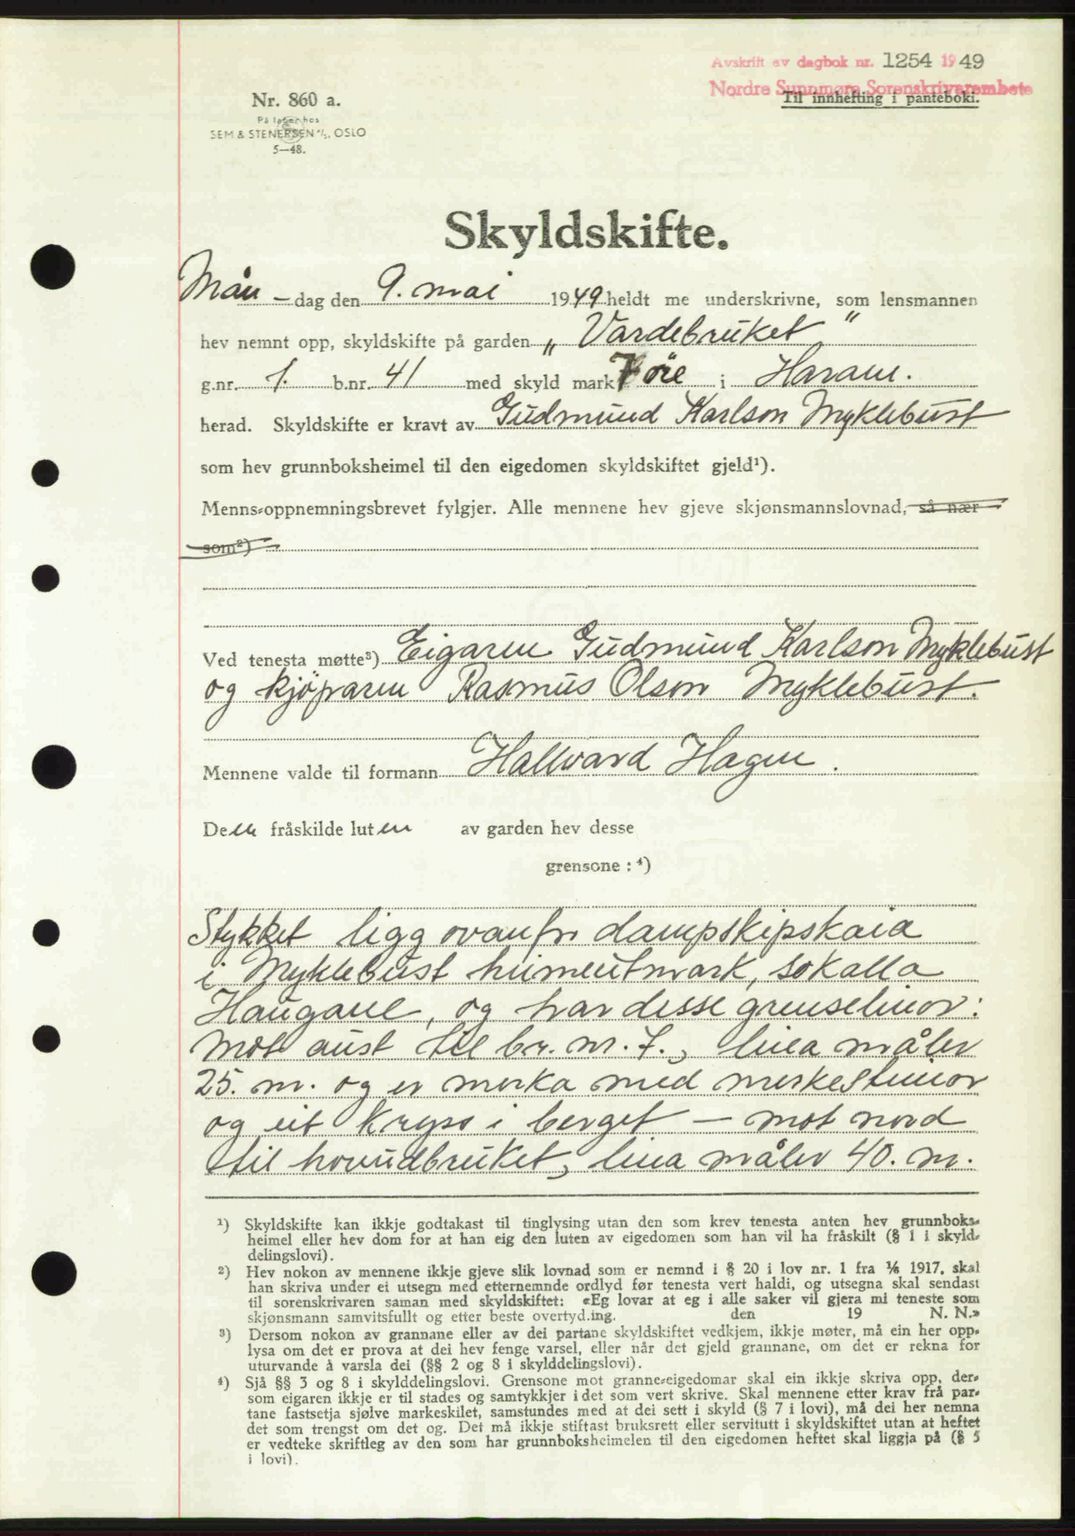 Avskrift av dagbok nr. 1254 1949
Nordre Sunnmøre Sorenskrivarembete
Til innhefting i panteboki.
Nr. 860 a.
På lager hos
SEM & STENERSEN A/S, OSLO
5—48.
Skyldskifte.
Mån-dag den 9. mai 1949 heldt me underskrivne, som lensmannen
hev nemnt opp, skyldskifte på garden „Vardebruket"
g.nr. 1. b.nr. 41 med skyld mark 7 öre i Haram.
herad. Skyldskifte er kravt av Gudmund Karlson Myklebust
som hev grunnboksheimel til den eigedomen skyldskiftet gjeld¹).
Menns-oppnemningsbrevet fylgjer. Alle mennene hev gjeve skjønsmannslovnad, så nær
som²)
Ved tenesta møtte³) Eigaren Gudmund Karlson Myklebust
og kjöparen Rasmus Olson Myklebust.
Mennene valde til formann Hallvard Hagen.
Den fråskilde luten av garden hev desse
grensone : ⁴)
Stykket ligg ovanfr dampskipskaia
i Myklebust heimeutmark, sokalla
Haugane, og har desse grenselinor:
mot aust til br. nr. 7., lina måler
25. m. og er merka med merkesteinor
og eit kryss i berget — mot nord
til hovudbruket, lina måler 40. m.
¹) Skyldskifte kan ikkje godtakast til tinglysing utan den som krev tenesta anten hev grunnboks-
heimel eller hev dom for at han eig den luten av eigedomen som han vil ha fråskilt (§ 1 i skyld-
delingslovi).
²) Hev nokon av mennene ikkje gjeve slik lovnad som er nemnd i § 20 i lov nr. 1 fra 1/6 1917, skal
han skriva under ei utsegn med etternemnde ordlyd før tenesta vert haldi, og utsegna skal sendast
til sorenskrivaren saman med skyldskiftet: «Eg lovar at eg i alle saker vil gjera mi teneste som
skjønsmann samvitsfullt og etter beste overtyding. den 19 N. N.»
³) Dersom nokon av grannane eller av dei partane skyldskiftet vedkjem, ikkje møter, må ein her opp-
lysa om det er prova at dei hev fenge varsel, eller når det gjeld grannane, om det er rekna for
uturvande å varsla dei (§§ 2 og 8 i skylddelingslovi).
⁴) Sjå §§ 3 og 8 i skylddelingslovi. Grensone mot granne-eigedomar skal ein ikkje skriva opp, der-
som eigaren ikkje er til stades og samtykkjer i det som vert skrive. Skal mennene etter krav frå par-
tane fastsetja sjølve markeskilet, samstundes med at dei sett i skyld (§ 7 i lovi), må dei her nemna
det som trengst om det og. Dei må ikkje stiftast bruksrett eller servitutt i skyldskiftet utan at heftet
er vedteke skriftleg av den som har grunnboksheimelen til den eigedomen heftet skal liggja på (§ 5
i lovi).